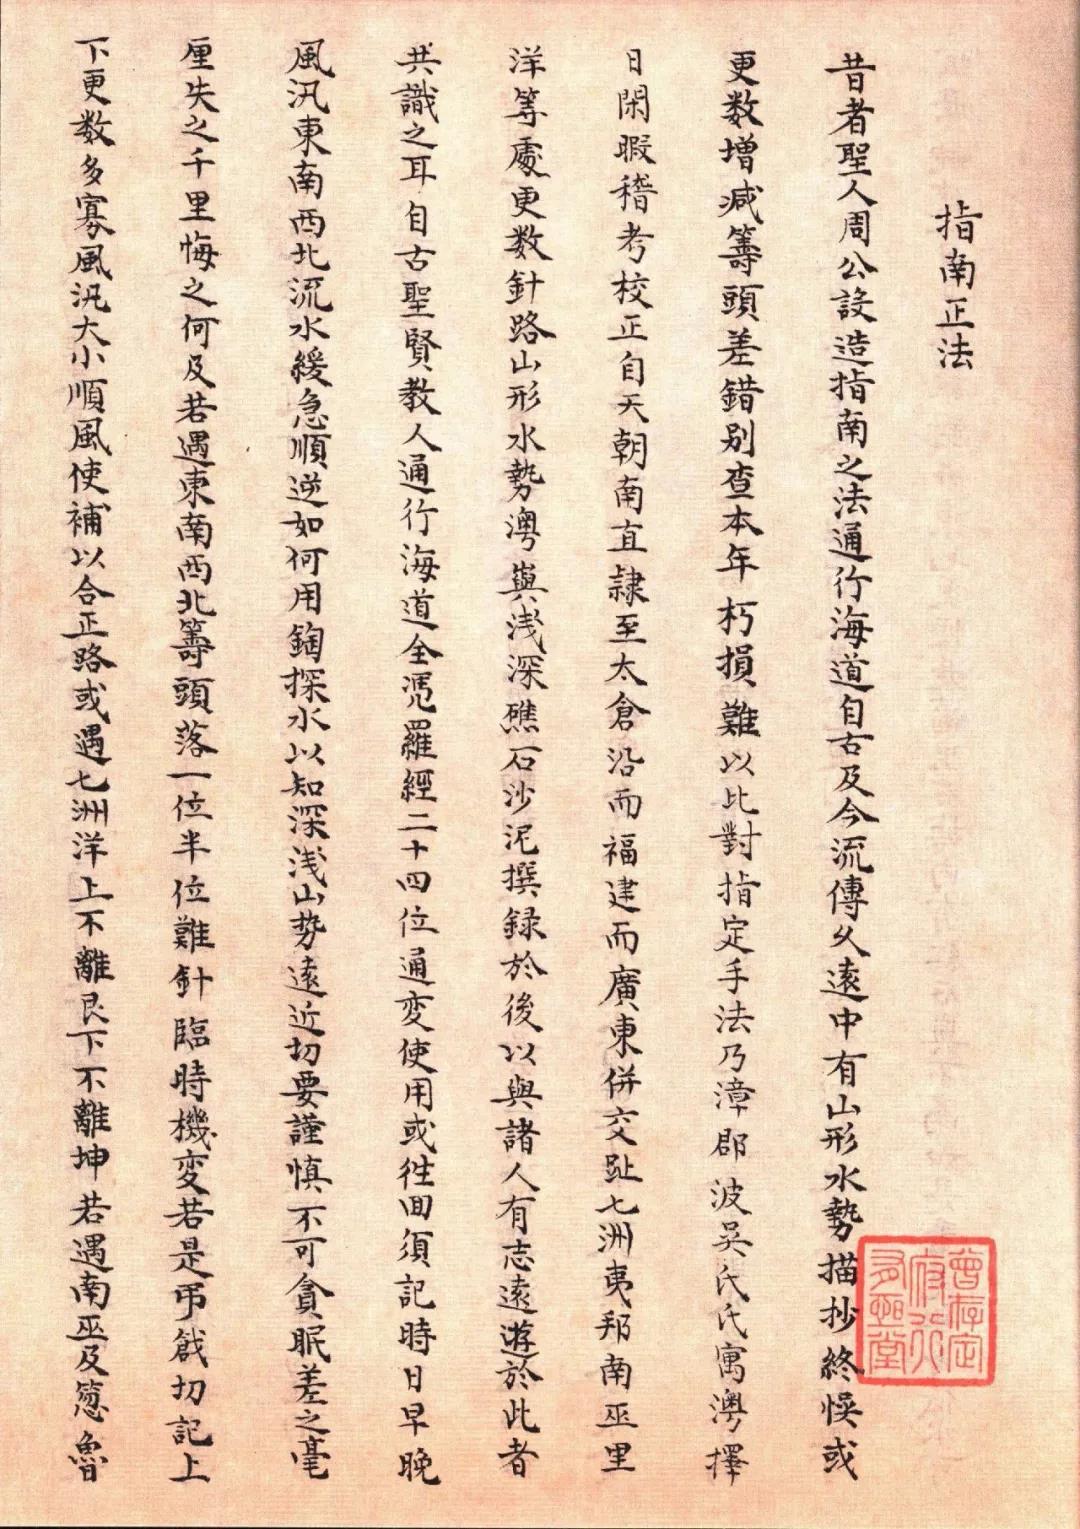 指南正法
昔者聖人周公設造指南之法通行海道自古及今流傳久遠中有山形水勢描抄終悞或
更数增減籌頭差錯別查本年朽損難以比對指定手法乃漳郡波吳氏氏寓澳擇
日閑暇稽考校正自天朝南直隷至太倉沿而福建而廣東併交趾七洲夷邦南巫里
洋等處更数針路山形水勢澳與浅深礁石沙泥撰録於後以與諸人有志遠遊於此者
共識之耳自古聖賢教人通行海道全凴羅經二十四位通变使用或徃回須記時日早晚
風汛東南西北流水緩急順逆如何用鋾探水以知深浅山势遠近切要謹慎不可貪眠差之毫
厘失之千里悔之何及若遇東南西北籌頭落一位半位難針臨時機变若是弔戗切記上
下更数多寡風汛大小順風使補以合正路或遇七洲洋上不離艮下不離坤若遇南巫及葱魯
曾存定
府行